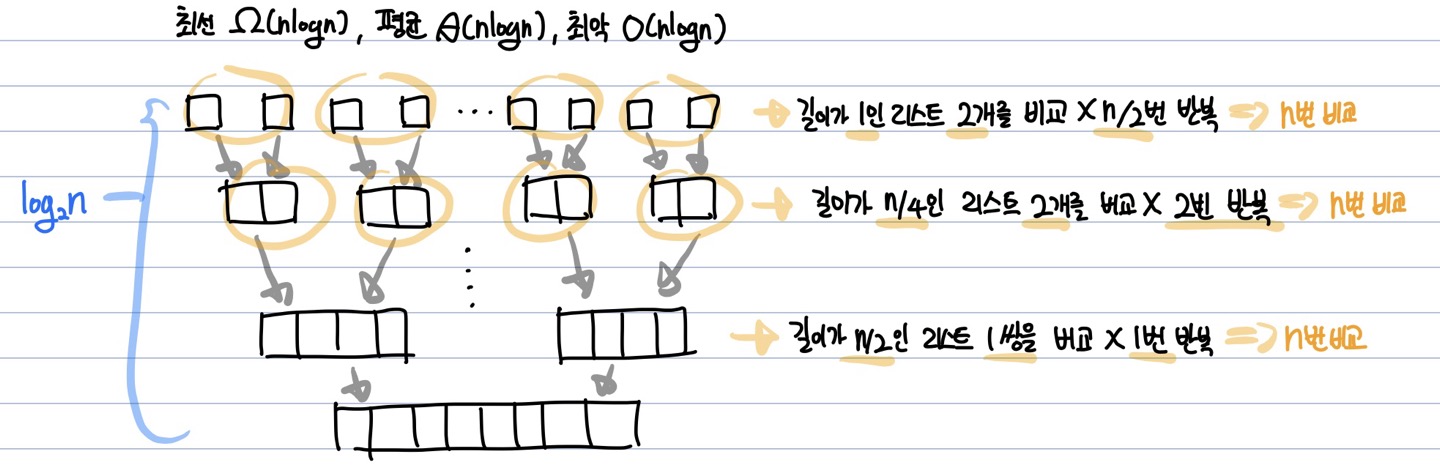 최선 Ω(nlogn), 평균 θ(nlogn), 최악 O(nlogn)
... → 길이가 1인 리스트 2개를 비교 × n/2번 반복 ⇒ n번 비교
log₂n
→ 길이가 n/4인 리스트 2개를 비교 × 2번 반복 ⇒ n번 비교
→ 길이가 n/2인 리스트 1쌍을 비교 × 1번 반복 ⇒ n번 비교